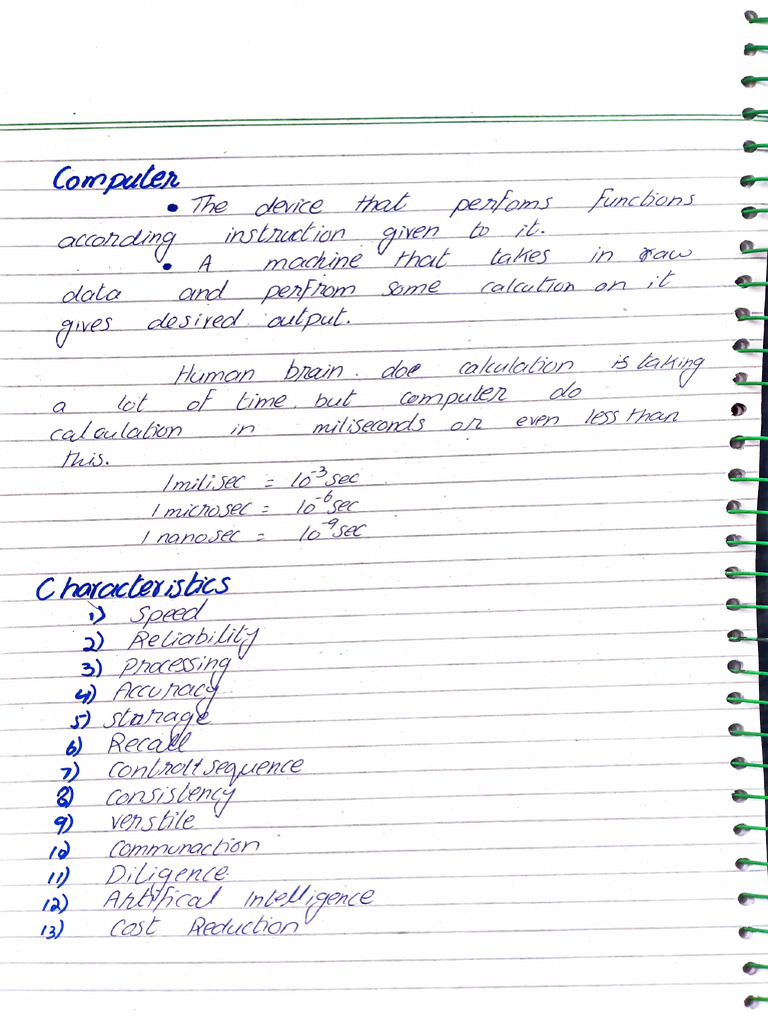 Computer
• The device that perfoms functions
according instruction given to it.
• A machine that takes in raw
data and perfrom some calcution on it
gives desired output.
Human brain. doe calculation is taking
a lot of time. but computer do
calculation in miliseconds or even less than
this.
1 milisec = 10⁻³ sec
1 microsec = 10⁻⁶ sec
1 nanosec = 10⁻⁹ sec
Characteristics
1) Speed
2) Reliability
3) Processing
4) Accuracy
5) storage
6) Recall
7) Control+sequence
8) consistency
9) verstile
10) Communaction
11) Diligence.
12) Artifical Intelligence
13) Cost Reduction